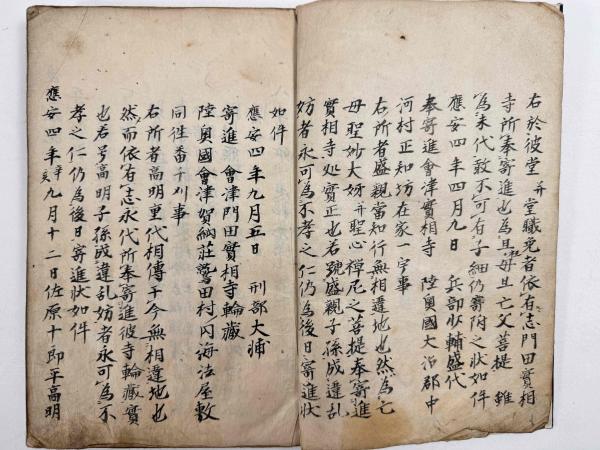 右於彼堂并堂職免者依有志門田實相
寺所奉寄進也為且母且亡父菩提雖
為末代敢不可有子細仍寄附之状如件
應安四年四月九日 兵部少輔盛代
奉寄進會津實相寺 陸奥國大沼郡中
河村正知坊在家一宇事
右所者盛親當知行無相違地也然為亡
母聖妙大姉并聖心禅尼之菩提奉寄進
實相寺処實正也若號盛親子孫成違乱
妨者永可為不孝之仁仍為後日寄進状
如件
應安四年九月五日 刑部大浦
寄進 會津門田實相寺輪藏
陸奥國會津賀納莊鷲田村内海法屋敷
同性番千刈事
右所者高明重代相傳于今無相違地也
然而依有志永代所奉寄進彼寺輪藏實
也若号高明子孫成違乱妨者永可為不
孝之仁仍為後日寄進状如件
應安四年辛亥九月十二日佐原十郎平高明